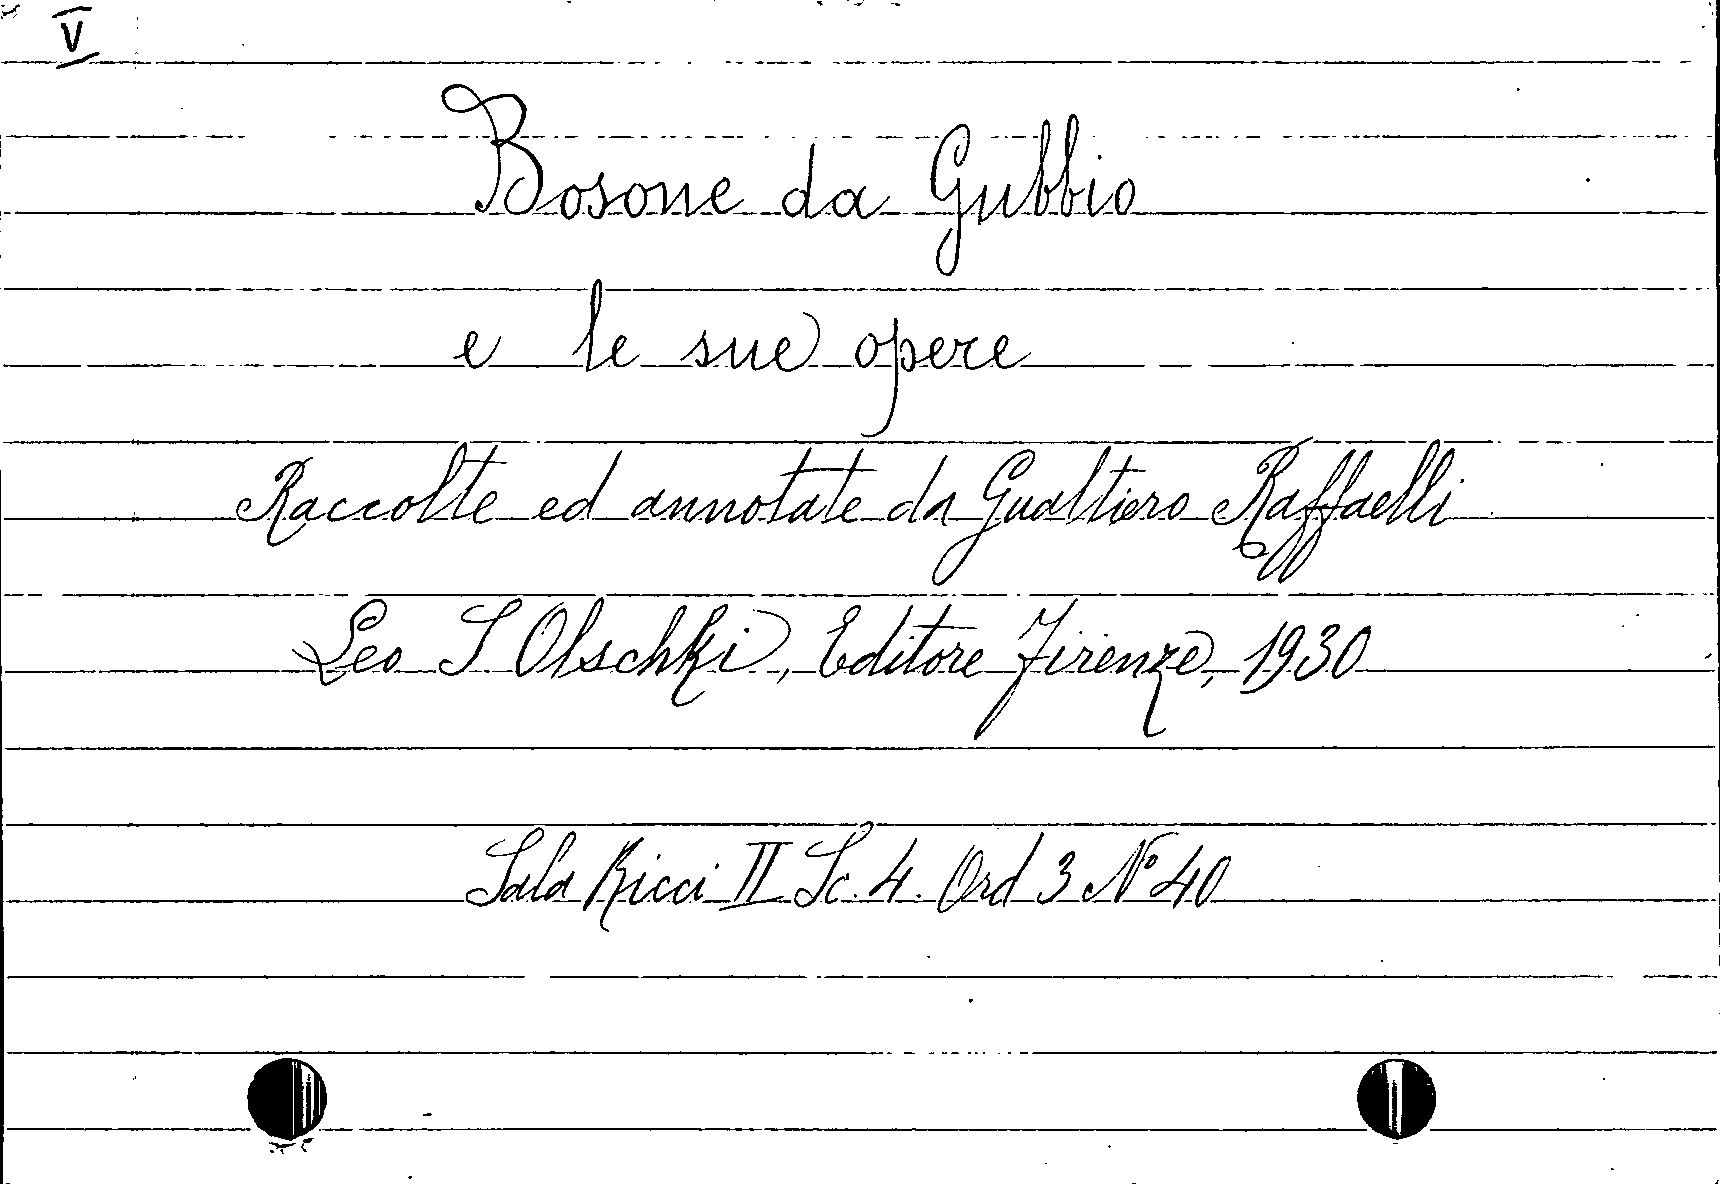 V
Bosone da Gubbio
e le sue opere
Raccolte ed annotate da Gualtiero Raffaelli
Leo S Olschki, Editore Firenze, 1930
Sala Ricci II Sc. 4. Ord 3 N° 40